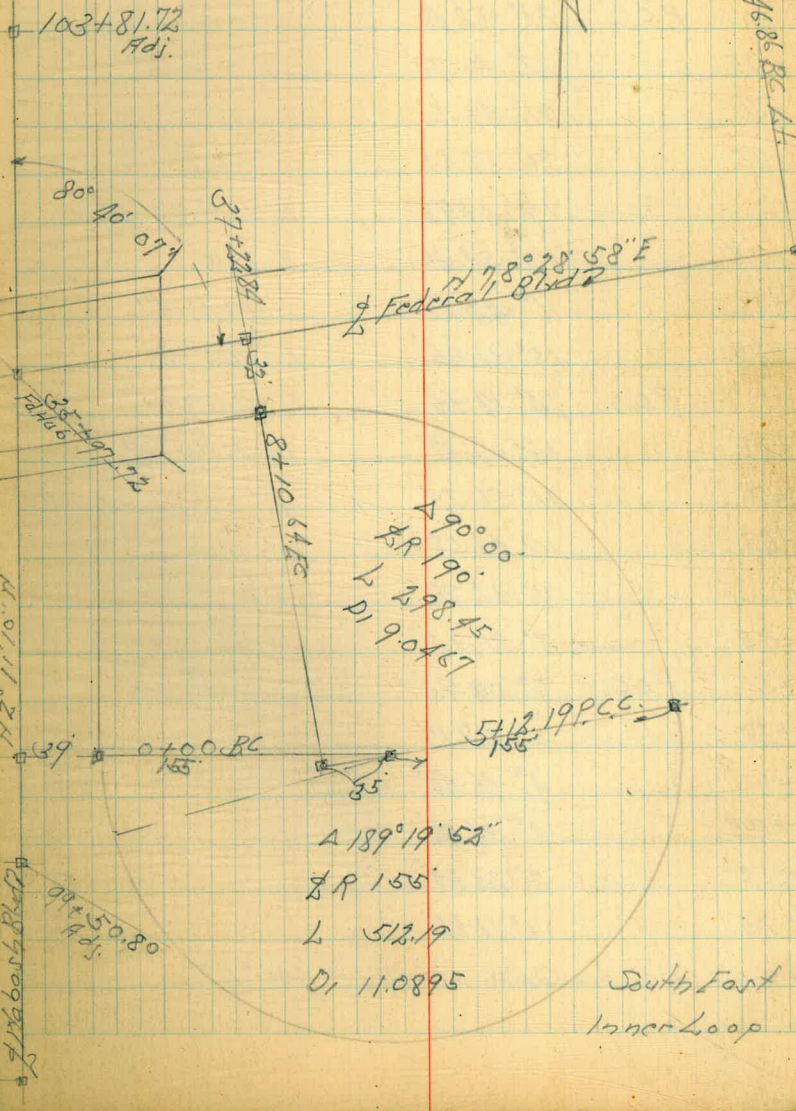 103+81.72
Adj.
46.86 BC Lt.
80° 40' 07"
37+22.84
N 78° 28' 58" E
℄ Federal Blvd
32'
35+97.72
Fd Hub
8+10.64 EC
Δ 90° 00'
℄ R 190'
L 298.45
D1 9.0467
N 2° 11' 10" W
39'
0+00 BC
155'
5+12.19 P.C.C.
155'
35'
Δ 189° 19' 52"
℄ R 155'
L 512.19
D1 11.0895
99+50.80
Adj.
℄ Wabash Blvd
South East
Inner Loop